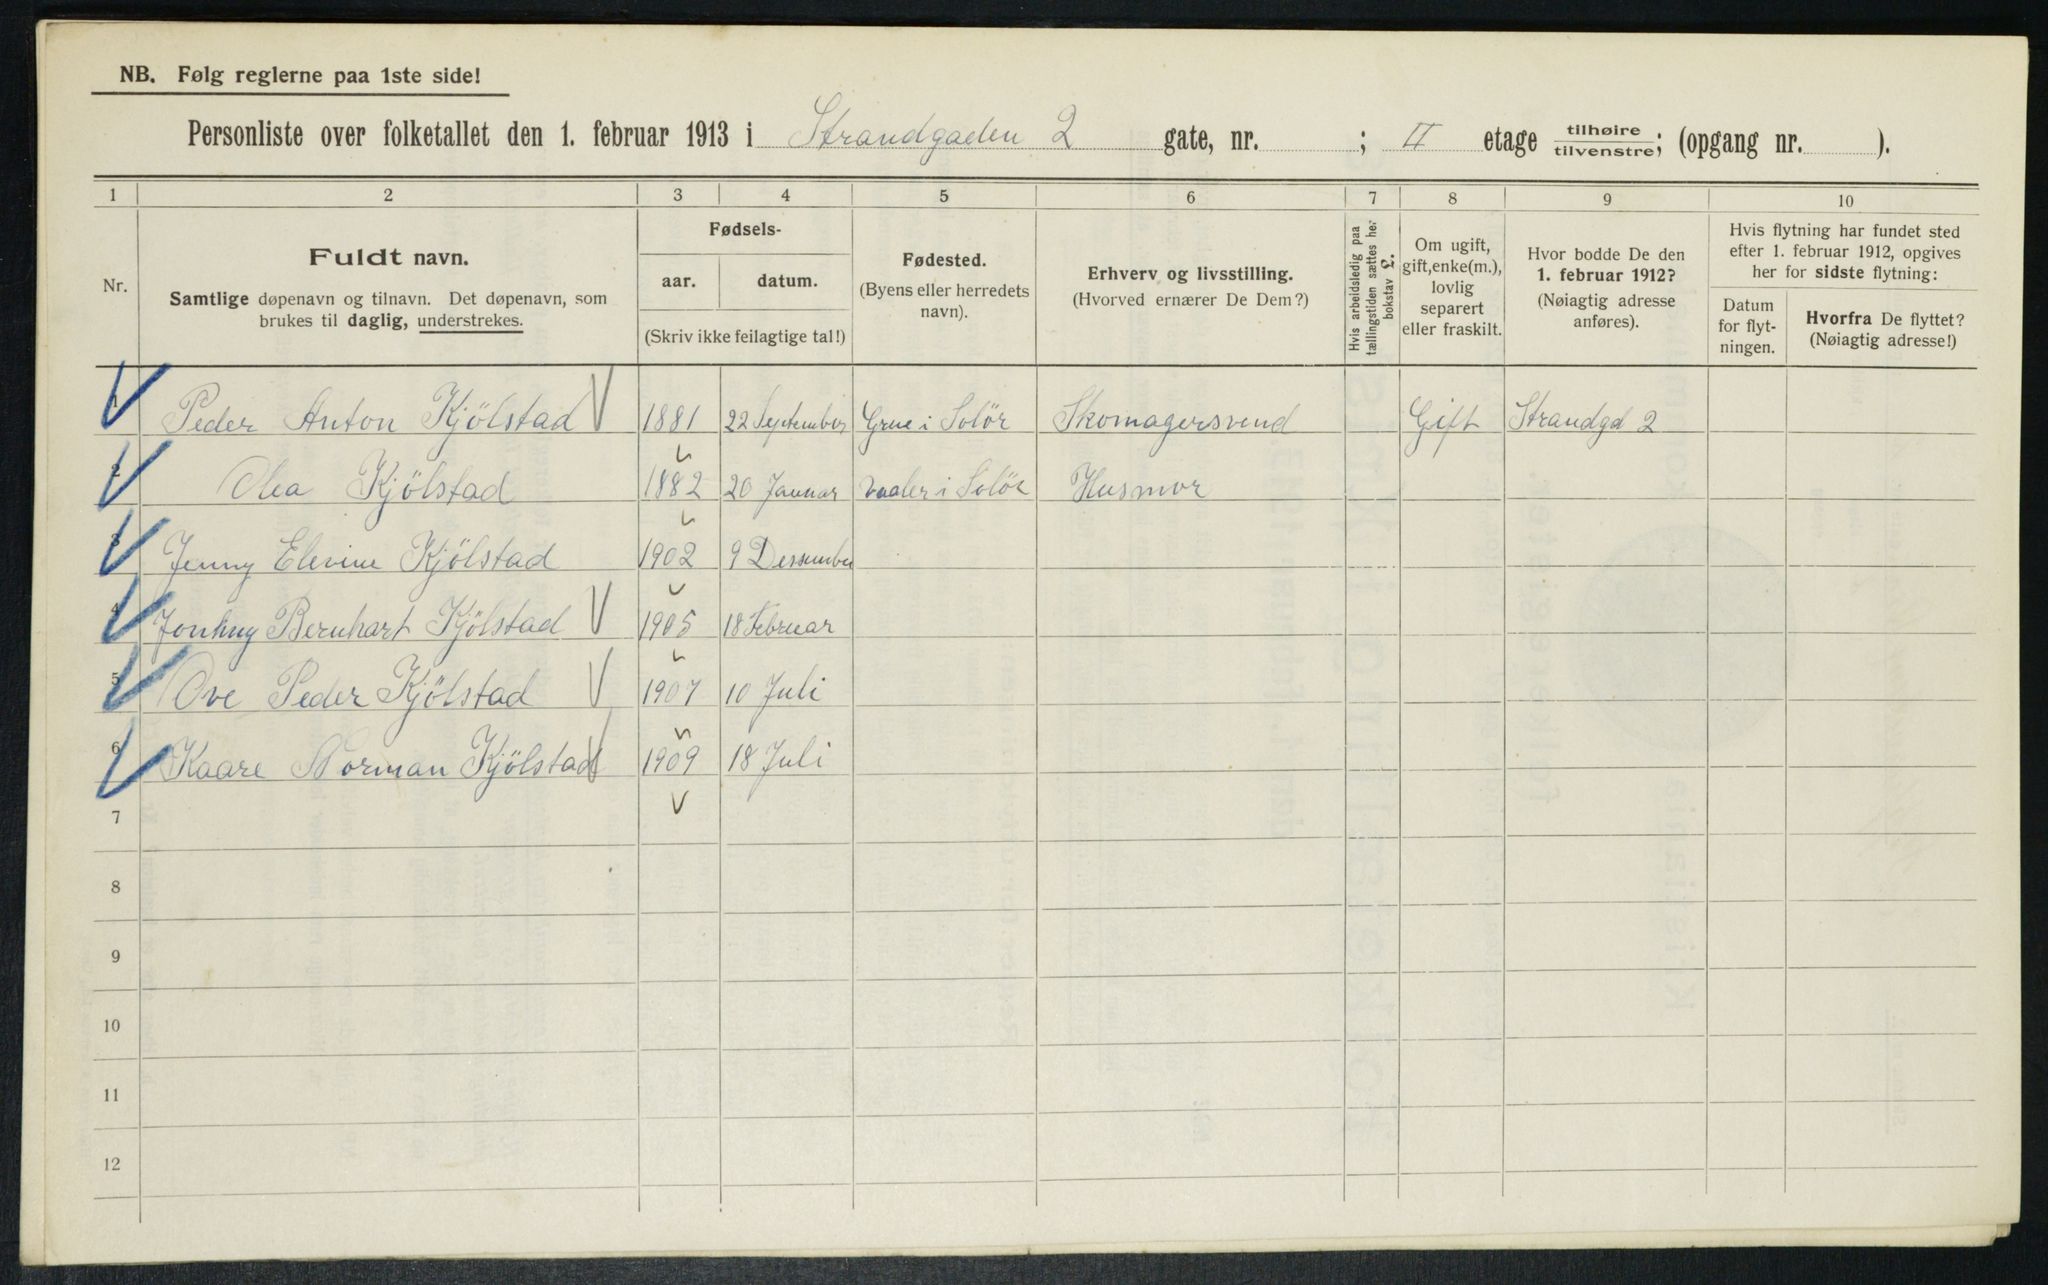 NB. Følg reglerne paa 1ste side!
Personliste over folketallet den 1. februar 1913 i Strandgaden 2 gate, nr. ; II etage tilhøire tilvenstre; (opgang nr. ).
1 2 3 4 5 6 7 8 9 10
Nr.
Fuldt navn.
Samtlige døpenavn og tilnavn. Det døpenavn, som
brukes til daglig, understrekes.
Fødsels-
aar. datum.
(Skriv ikke feilagtige tal!)
Fødested.
(Byens eller herredets
navn).
Erhverv og livsstilling.
(Hvorved ernærer De Dem?)
Hvis arbeidsledig paa
tællingstiden sættes her
bokstav L.
Om ugift,
gift, enke(m.),
lovlig
separert
eller fraskilt.
Hvor bodde De den
1. februar 1912?
(Nøiagtig adresse
anføres).
Hvis flytning har fundet sted
efter 1. februar 1912, opgives
her for sidste flytning:
Datum
for flyt-
ningen.
Hvorfra De flyttet?
(Nøiagtig adresse!)
1 Peder Anton Kjölstad 1881 22 September Grue i Solör Skomagersvend Gift Strandgd 2
2 Olea Kjölstad 1882 20 Januar Vaaler i Solör Husmor
3 Jenny Elevine Kjölstad 1902 9 Dessember
4 Bernhart Kjölstad 1905 18 Februar
5 Ove Peder Kjölstad 1907 10 Juli
6 Kaare Norman Kjölstad 1909 18 Juli
7
8
9
10
11
12